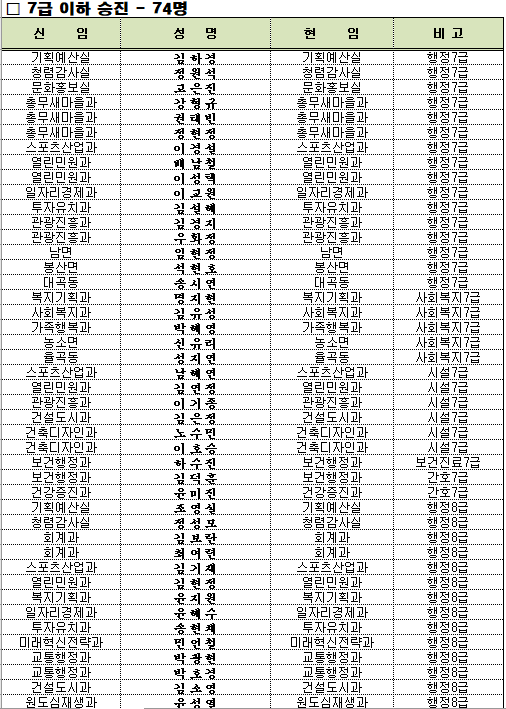 □ 7급 이하 승진 - 74명
신 임 성 명 현 임 비 고
기획예산실 김하경 기획예산실 행정7급
청렴감사실 정원석 청렴감사실 행정7급
문화홍보실 고은진 문화홍보실 행정7급
총무새마을과 강형규 총무새마을과 행정7급
총무새마을과 권태빈 총무새마을과 행정7급
총무새마을과 정현정 총무새마을과 행정7급
스포츠산업과 이경설 스포츠산업과 행정7급
열린민원과 배남철 열린민원과 행정7급
열린민원과 이성택 열린민원과 행정7급
일자리경제과 이교원 일자리경제과 행정7급
투자유치과 김설혜 투자유치과 행정7급
관광진흥과 김경지 관광진흥과 행정7급
관광진흥과 우희정 관광진흥과 행정7급
남면 임현정 남면 행정7급
봉산면 석현호 봉산면 행정7급
대곡동 송시연 대곡동 행정7급
복지기획과 명지현 복지기획과 사회복지7급
사회복지과 김유성 사회복지과 사회복지7급
가족행복과 박혜영 가족행복과 사회복지7급
농소면 신유리 농소면 사회복지7급
율곡동 성지연 율곡동 사회복지7급
스포츠산업과 남혜연 스포츠산업과 시설7급
열린민원과 김연정 열린민원과 시설7급
관광진흥과 이기종 관광진흥과 시설7급
건설도시과 김은정 건설도시과 시설7급
건축디자인과 노수민 건축디자인과 시설7급
건축디자인과 이호승 건축디자인과 시설7급
보건행정과 하수진 보건행정과 보건진료7급
보건행정과 김덕훈 보건행정과 간호7급
건강증진과 윤미진 건강증진과 간호7급
기획예산실 조영실 기획예산실 행정8급
청렴감사실 정성모 청렴감사실 행정8급
회계과 김보란 회계과 행정8급
회계과 최여련 회계과 행정8급
스포츠산업과 김기재 스포츠산업과 행정8급
열린민원과 김현정 열린민원과 행정8급
복지기획과 윤지원 복지기획과 행정8급
일자리경제과 윤혜수 일자리경제과 행정8급
투자유치과 송현채 투자유치과 행정8급
미래혁신전략과 민언철 미래혁신전략과 행정8급
교통행정과 박광현 교통행정과 행정8급
교통행정과 박호경 교통행정과 행정8급
건설도시과 김소영 건설도시과 행정8급
원도심재생과 유성영 원도심재생과 행정8급